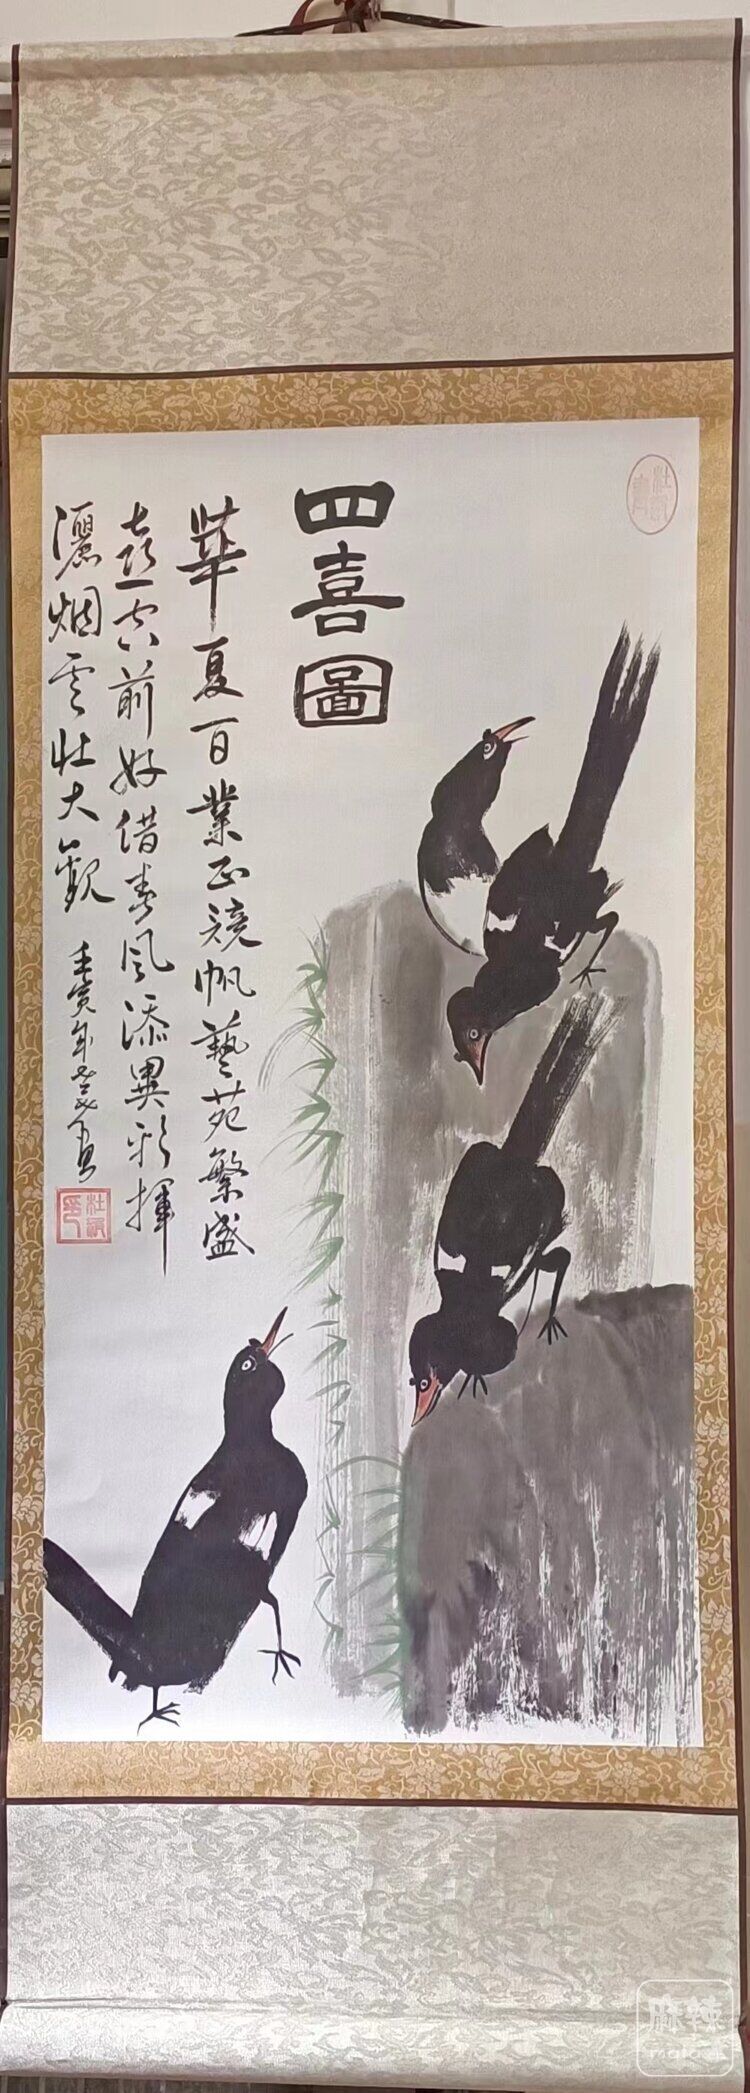 四喜圖
華夏百業正競帆藝苑繁盛
喜空前好借春風添異彩揮
灑烟雲壯大觀
壬寅年
麻辣